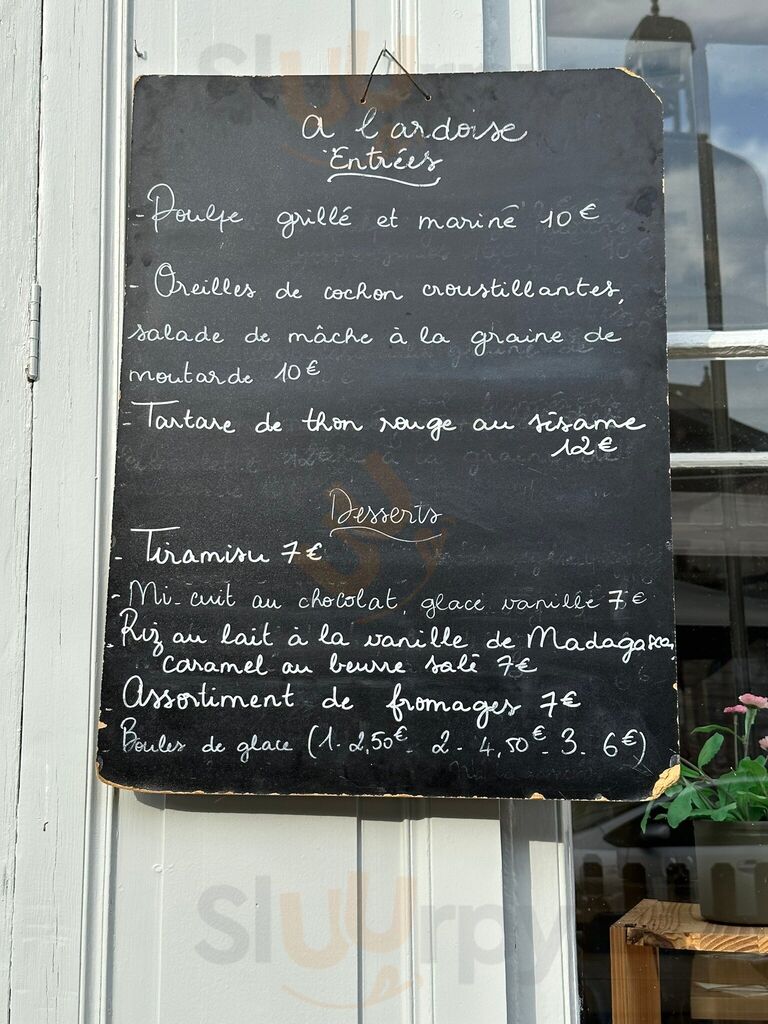 A l'ardoise
Entrées
- Poulpe grillé et mariné 10€
- Oreilles de cochon croustillantes,
salade de mâche à la graine de
moutarde 10€
- Tartare de thon rouge au sésame
12€
Desserts
- Tiramisu 7€
- Mi-cuit au chocolat, glace vanille 7€
- Riz au lait à la vanille de Madagascar,
caramel au beurre salé 7€
- Assortiment de fromages 7€
- Boules de glace (1- 2,50€- 2- 4,50€- 3- 6€)
Sluurpy